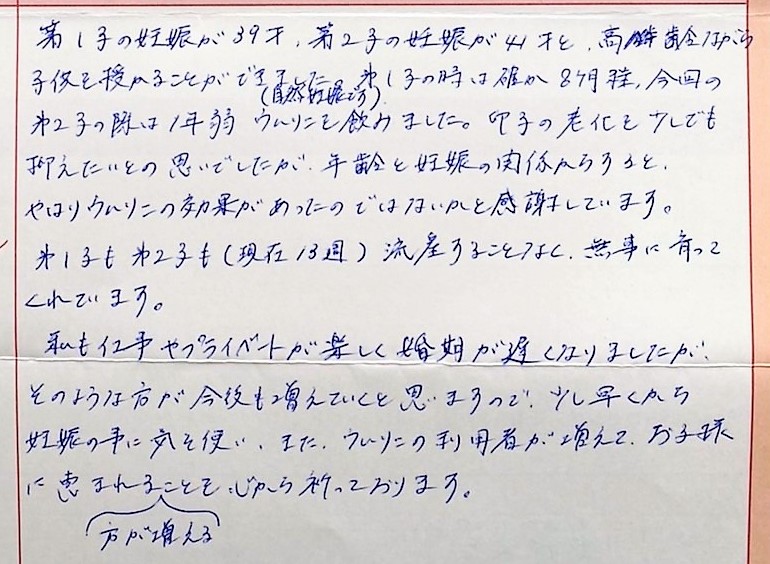 第1子の妊娠が39才、第2子の妊娠が41才と、高齢ながら
子供を授かることができました。第1子の時は確か8ヶ月程、今回の
(自然妊娠です)
第2子の際は1年弱ウムリンを飲みました。卵子の老化を少しでも
抑えたいとの思いでしたが、年齢と妊娠の関係からすると、
やはりウムリンの効果があったのではないかと感謝しています。
第1子も第2子も(現在13週)流産することなく、無事に育って
くれています。
私も仕事やプライベートが楽しく婚期が遅くなりましたが、
そのような方が今後も増えていくと思いますので、少し早くから
妊娠の事に気を使い、また、ウムリンの利用者が増えて、お子様
に恵まれることを心から祈っております。
方が増える